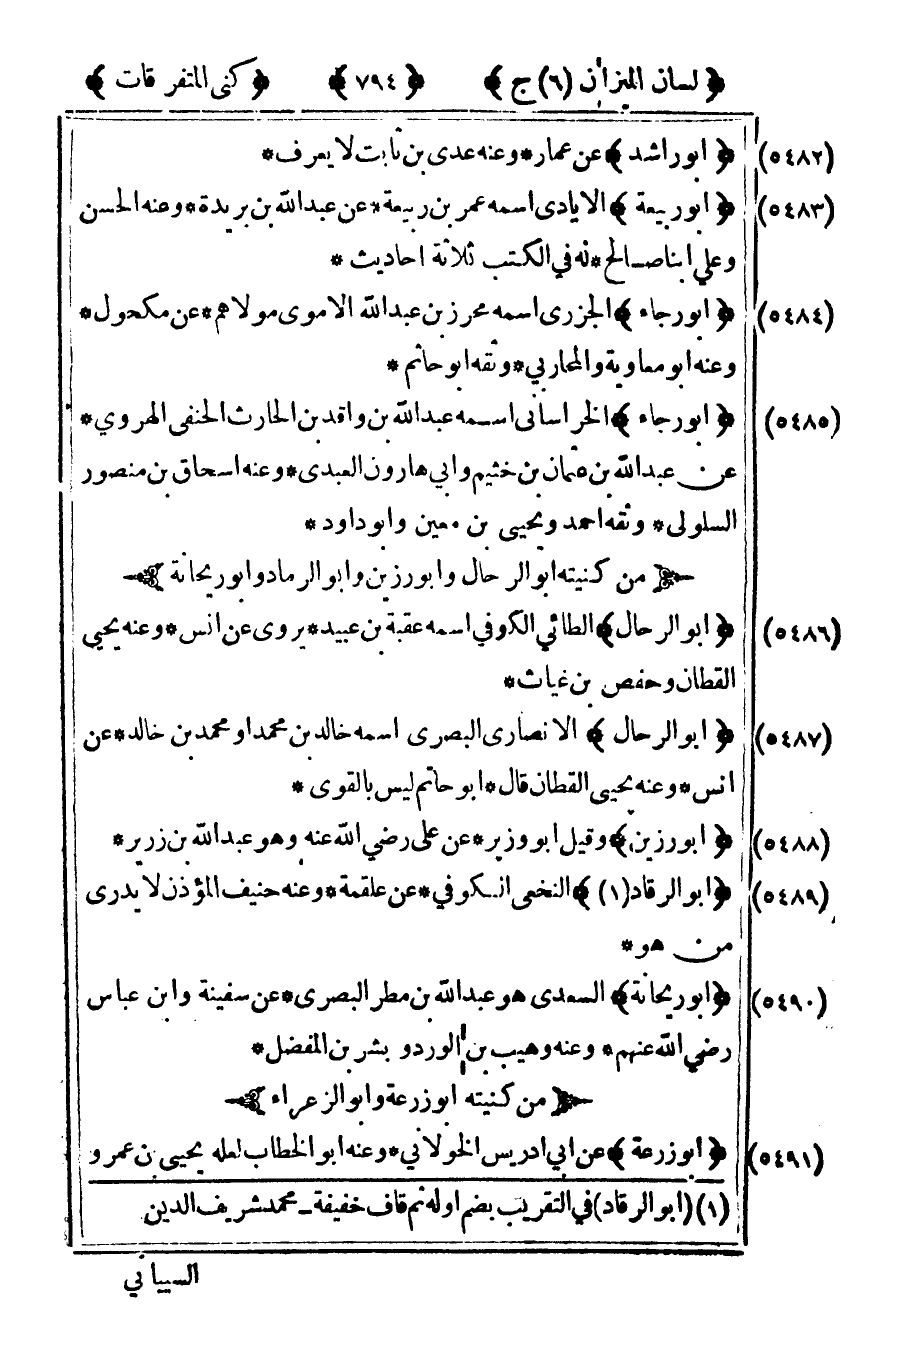 ﴿ لسان الميزان (٦) ج ﴾ ﴿ ٧٩٤ ﴾ ﴿ كنى المتفرقات ﴾
(٥٤٨٢) ﴿ ابو راشد ﴾ عن عمار * وعنه عدى بن ثابت لا يعرف *
(٥٤٨٣) ﴿ ابو ربيعة ﴾ الايادى اسمه عمر بن ربيعة * عن عبدالله بن بريدة * وعنه الحسن
وعلي ابنا صالح * له في الكتب ثلاثة احاديث *
(٥٤٨٤) ﴿ ابو رجاء ﴾ الجزرى اسمه محرز بن عبدالله الاموى مولاهم * عن مكحول *
وعنه ابو معاوية والمحاربي * وثقه ابو حاتم *
(٥٤٨٥) ﴿ ابو رجاء ﴾ الخراسانى اسمه عبدالله بن واقد بن الحارث الحنفى الهروي *
عن عبدالله بن عثمان بن خثيم وابي هارون العبدى * وعنه اسحاق بن منصور
السلولى * وثقه احمد ويحيى بن معين وابو داود *
﴿ من كنيته ابو الرحال وابو رزين وابو الرماد وابو ريحانة ﴾
(٥٤٨٦) ﴿ ابو الرحال ﴾ الطائي الكوفي اسمه عقبة بن عبيد * يروى عن انس * وعنه يحيى
القطان وحفص بن غياث *
(٥٤٨٧) ﴿ ابو الرحال ﴾ الانصارى البصرى اسمه خالد بن محمد او محمد بن خالد * عن
انس * وعنه يحيى القطان قال * ابو حاتم ليس بالقوى *
(٥٤٨٨) ﴿ ابو رزين ﴾ وقيل ابو وزير * عن على رضي الله عنه وهو عبدالله بن زرير *
(٥٤٨٩) ﴿ ابو الرقاد (١) ﴾ النخعى الكوفي * عن علقمة * وعنه حنيف المؤذن لا يدرى
من هو *
(٥٤٩٠) ﴿ ابو ريحانة ﴾ السعدى هو عبدالله بن مطر البصرى * عن سفينة وابن عباس
رضي الله عنهم * وعنه وهيب بن الورد و بشر بن المفضل *
﴿ من كنيته ابو زرعة وابو الزعراء ﴾
(٥٤٩١) ﴿ ابو زرعة ﴾ عن ابي ادريس الخولاني * وعنه ابو الخطاب لعله يحيى بن عمرو
(١) (ابو الرقاد) في التقريب بضم اوله ثم قاف خفيفة ـ محمد شريف الدين
السيباني